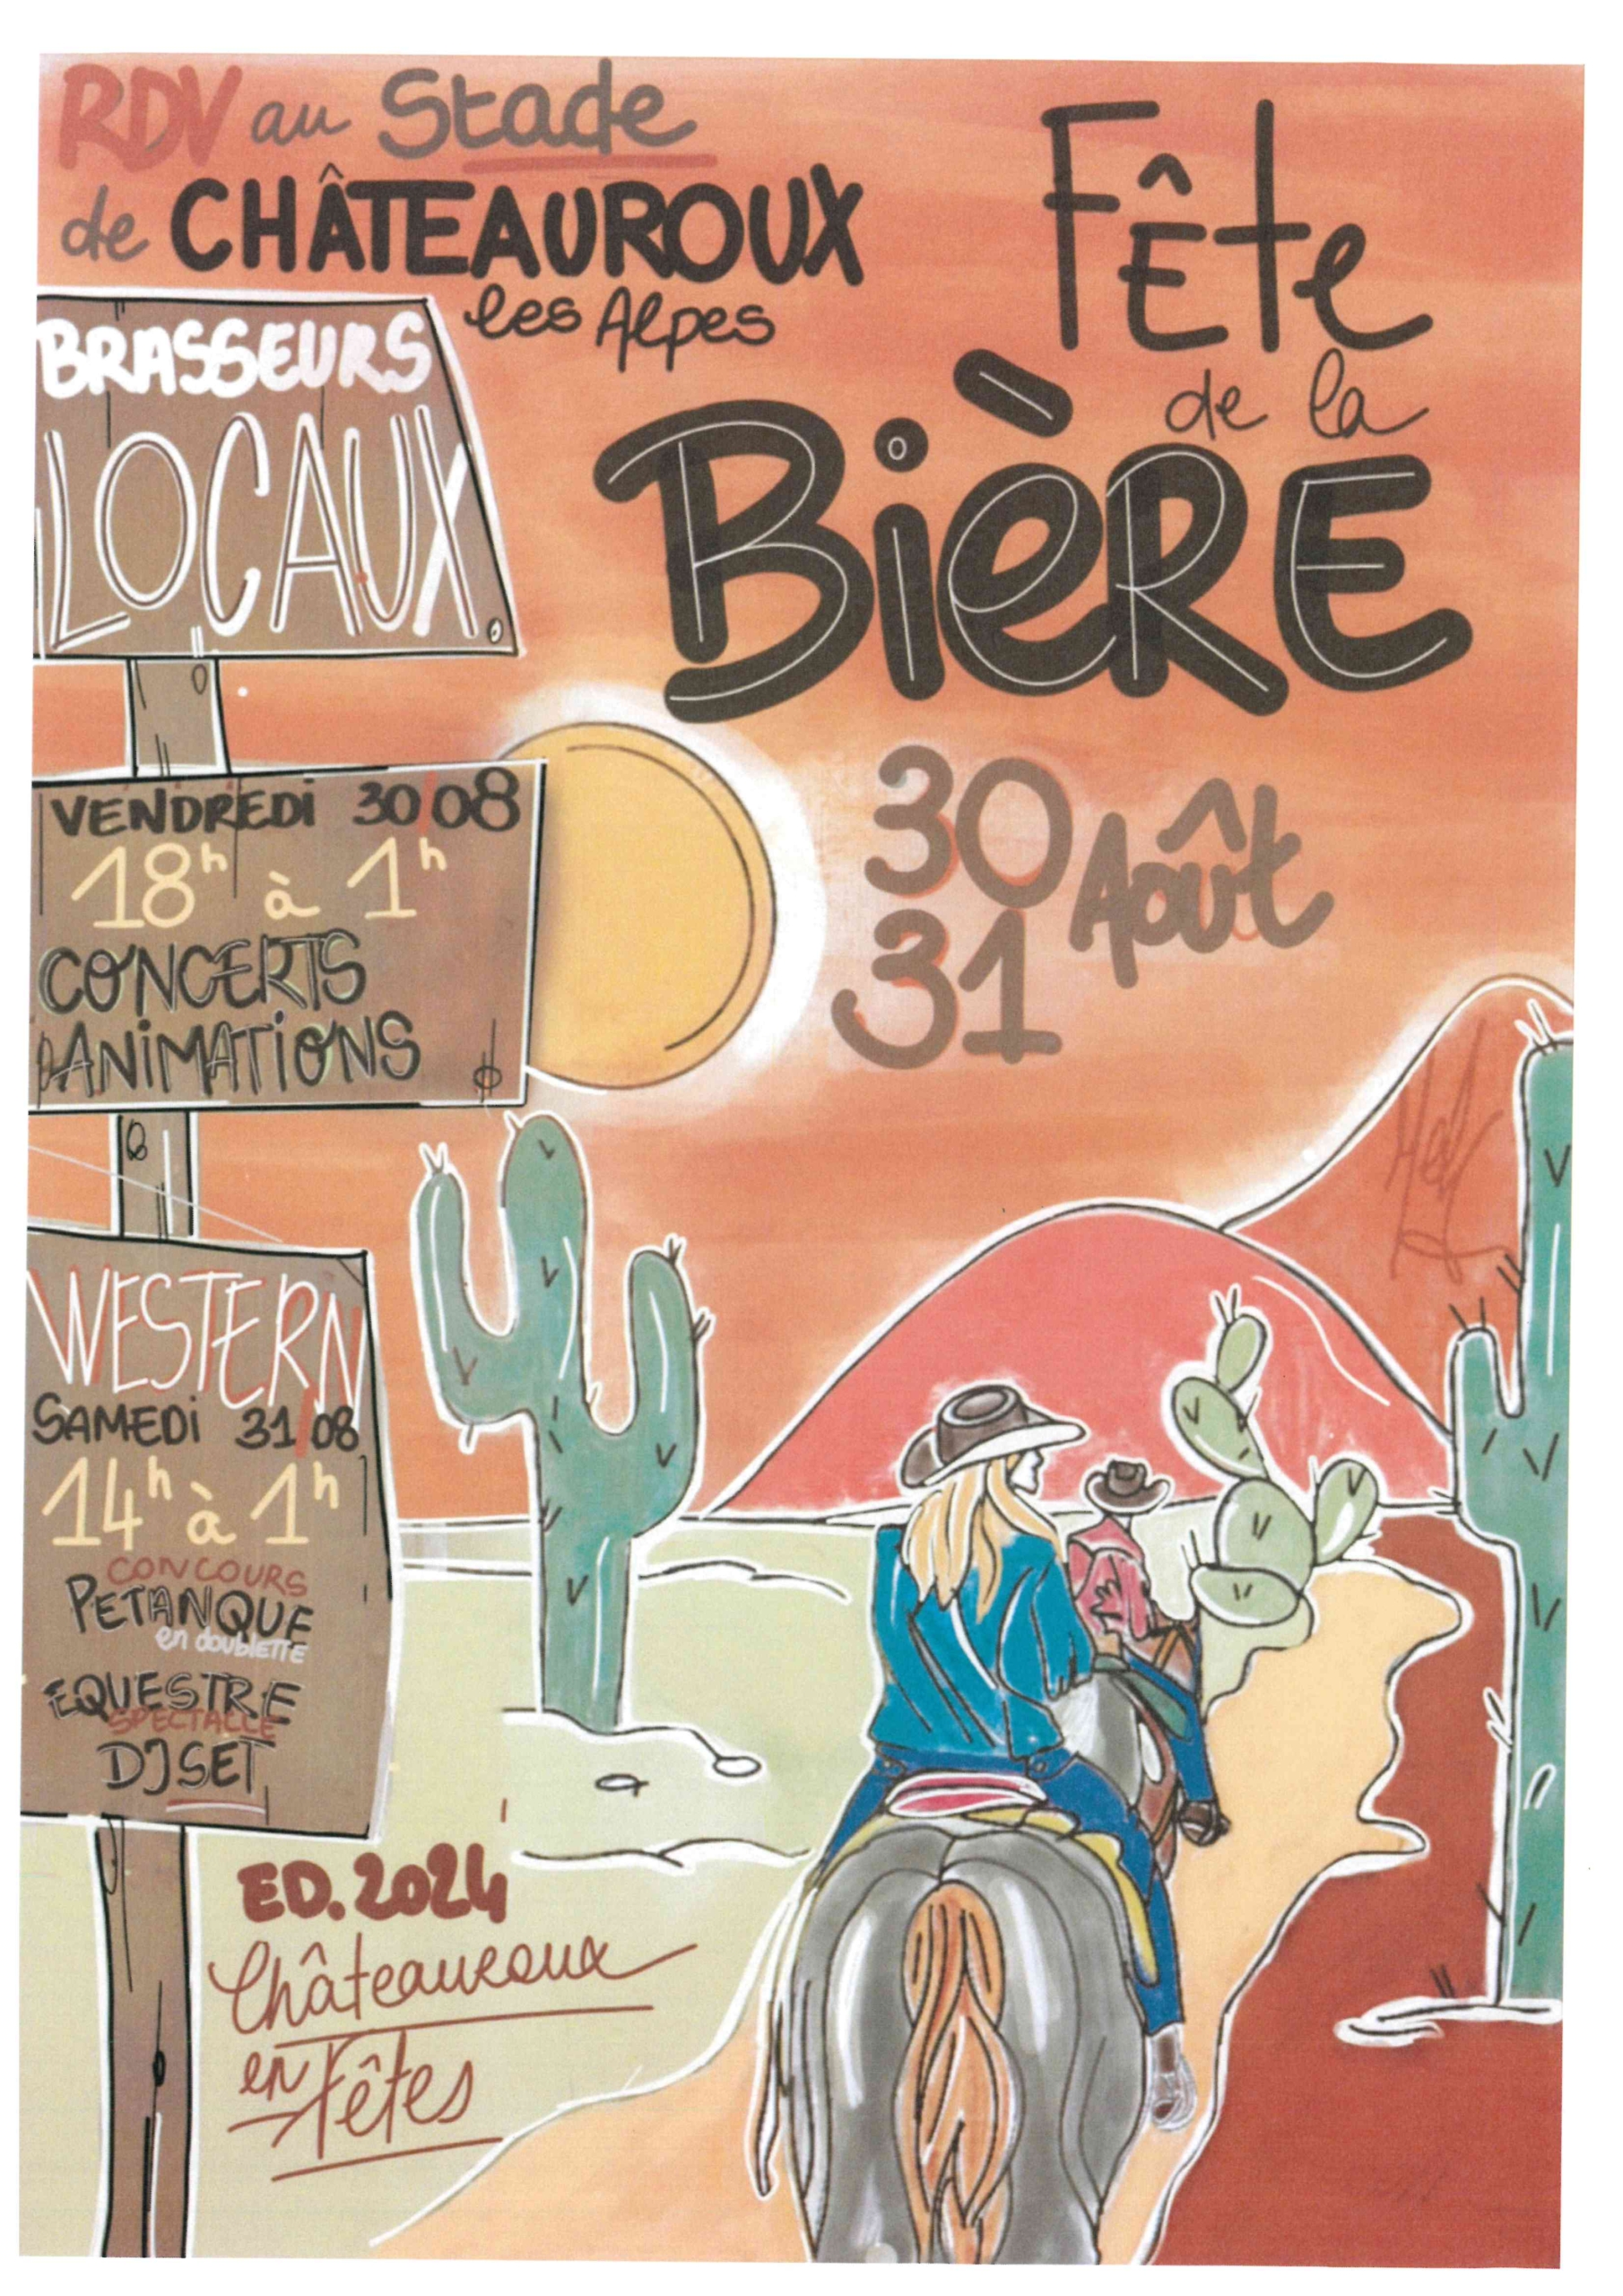 RDV au Stade
de CHÂTEAUROUX
les Alpes
FÊte
de la
BièRE
30
31
Août
BRASSEURS
LOCAUX.
VENDREDi 30/08
18h à 1h
CONCERTS
ANiMATiONS
WESTERN
SAMEDi 31/08
14h à 1h
CONCOURS
PETANQUE
en doubleTTE
EQUESTRE
SPECTACLE
DJ SET
ED. 2024
Châteauroux
en Fêtes